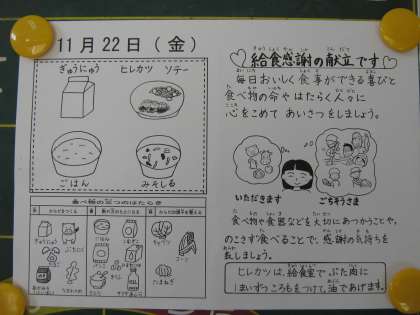 11月22日(金)
ぎゅうにゅう
ヒレカツ ソテー
ごはん
みそしる
食べ物の三つのはたらき
ぎゅうにゅう
ぶたにく
ごはん
キャベツ
コーン
たまねぎ
♡給食感謝の献立です♡
毎日おいしく食事ができる喜びと
食べ物の命やはたらく人々に
心をこめてあいさつをしましょう。
いただきます
ごちそうさま
食べ物や食器などを大切にあつかうことや、
のこさず食べることで、感謝の気持ちを
表しましょう。
ヒレカツは、給食室でぶた肉に
1まいずつころもをつけて、油であげます。